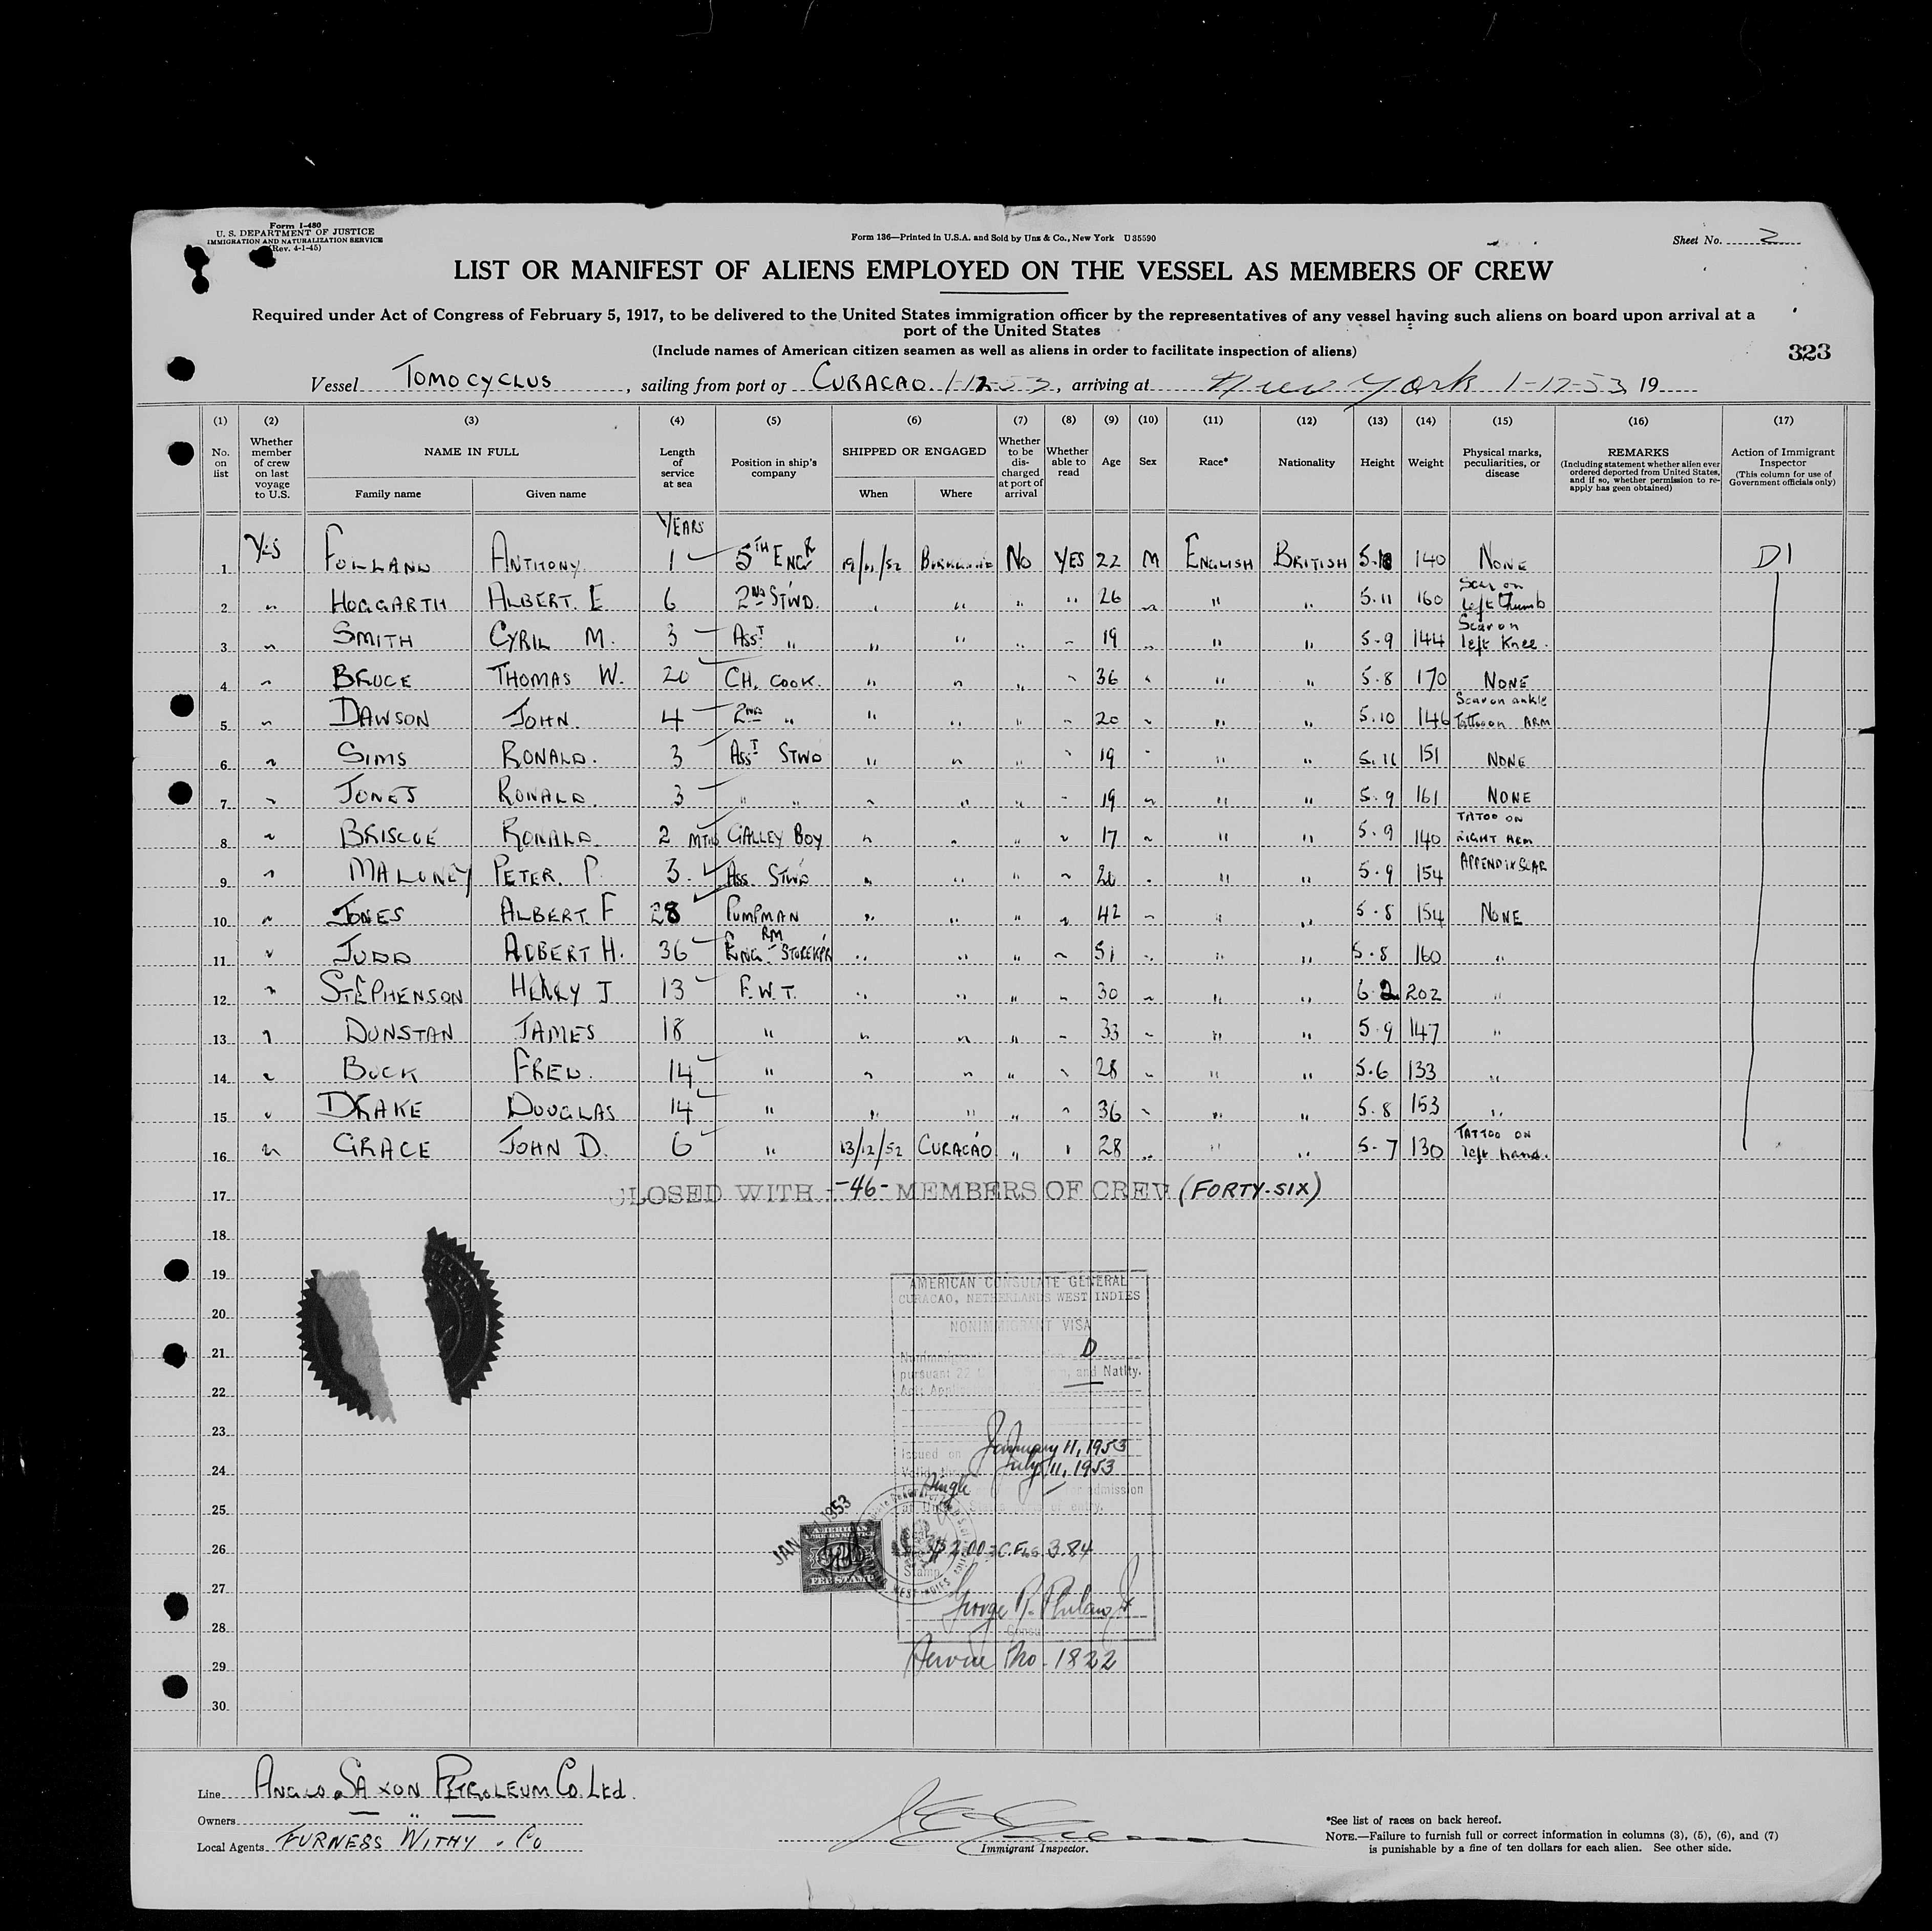 Form I-480
U. S. DEPARTMENT OF JUSTICE
IMMIGRATION AND NATURALIZATION SERVICE
(Rev. 4-1-45)
Form 136—Printed in U.S.A. and Sold by Unz & Co., New York U 35590
Sheet No. 2
LIST OR MANIFEST OF ALIENS EMPLOYED ON THE VESSEL AS MEMBERS OF CREW
Required under Act of Congress of February 5, 1917, to be delivered to the United States immigration officer by the representatives of any vessel having such aliens on board upon arrival at a
port of the United States
(Include names of American citizen seamen as well as aliens in order to facilitate inspection of aliens)
323
Vessel TOMOCYCLUS, sailing from port of CURACAO 1-12-53, arriving at New York 1-12-53 19
(1) (2) (3) (4) (5) (6) (7) (8) (9) (10) (11) (12) (13) (14) (15) (16) (17)
No. on list
Whether member of crew on last voyage to U.S.
NAME IN FULL
Family name Given name
Length of service at sea
Position in ship's company
SHIPPED OR ENGAGED
When Where
Whether to be discharged at port of arrival
Whether able to read
Age
Sex
Race*
Nationality
Height
Weight
Physical marks, peculiarities, or disease
REMARKS
(Including statement whether alien ever ordered deported from United States, and if so, whether permission to re-apply has geen obtained)
Action of Immigrant Inspector
(This column for use of Government officials only)
YEARS
1 Yes FOLLAND ANTHONY 1 5TH ENGR 19/11/52 No YES 22 M ENGLISH BRITISH 140 NONE D1
2 " HOGGARTH ALBERT. E 6 2ND STWD. " " " " 26 " " " 5.11 160 Scar on left thumb
3 " SMITH CYRIL M. 3 ASST " " " " " 19 " " " 5.9 144 Scar on left Knee.
4 " BRUCE THOMAS W. 20 CH. COOK. " " " " 36 " " " 5.8 170 NONE
5 " DAWSON JOHN. 4 2ND " " " " " 20 " " " 5.10 146 Scar on ankle Tattoo on ARM
6 " SIMS RONALD. 3 ASST STWD " " " 19 " " " 5.11 151 NONE
7 " JONES RONALD. 3 " " " " " " 19 " " " 5.9 161 NONE
8 " BRISCOE RONALD. 2 MTHS GALLEY BOY " " " " 17 " " " 5.9 140 TATOO ON RIGHT ARM
9 " MALONEY PETER. P. 3. ASS. STWD " " " " " " " 5.9 154 APPENDIX SCAR
10 " JONES ALBERT F 28 PUMPMAN " " " " 42 " " " 5.8 154 NONE
11 " JUDD ALBERT H. 36 ENG. RM STOREKPR " " " " 51 " " " 5.8 160 "
12 " STEPHENSON HENRY J 13 F.W.T. " " " " 30 " " " 6.2 202 "
13 " DUNSTAN JAMES 18 " " " " " 33 " " " 5.9 147 "
14 " BUCK FRED. 14 " " " " " 28 " " " 5.6 133 "
15 " DRAKE DOUGLAS 14 " " " " " 36 " " " 5.8 153 "
16 " GRACE JOHN D. 6 " 13/12/52 CURACAO " " 28 " " " 5.7 130 TATTOO ON left hand.
17 CLOSED WITH -46- MEMBERS OF CREW (FORTY-SIX)
18
19
20
21
22
23
24
25
26
27
28
29
30
AMERICAN CONSULATE GENERAL
CURACAO, NETHERLANDS WEST INDIES
NONIMMIGRANT VISA
Nonimmigrant D
pursuant 22 and Natlty.
Act: Appli
Issued on January 11, 1953
Valid July 11, 1953
Single admission
at United States of entry.
JAN 1953
AMERICAN
FEE STAMP
WEST INDIES
$2.00 = C.Fls 3.84
Stamp
Consul
Service No. 1822
Line ANGLO-SAXON PETROLEUM CO. Ltd.
Owners "
Local Agents FURNESS WITHY & CO
Immigrant Inspector.
*See list of races on back hereof.
NOTE.—Failure to furnish full or correct information in columns (3), (5), (6), and (7)
is punishable by a fine of ten dollars for each alien. See other side.